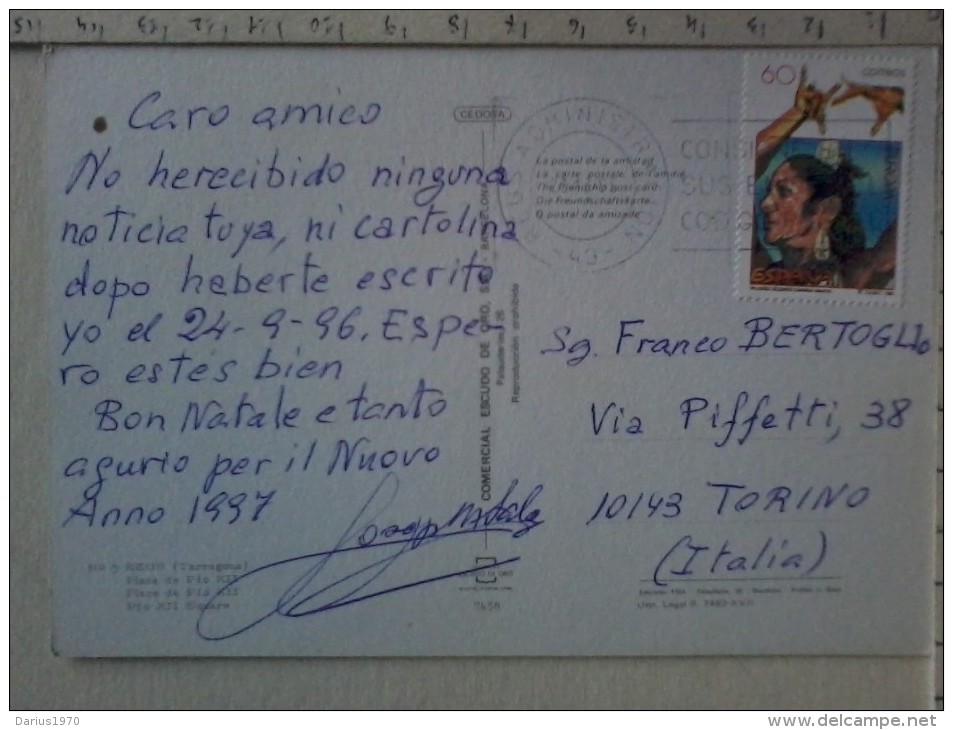 Caro amico
No herecibido ninguna
noticia tuya, ni cartolina
dopo haberte escrito
yo el 24-9-96. Espe-
ro estés bien
Bon Natale e tanto
agurio per il Nuovo
Anno 1997
CEDOSA
La postal de la amistad
La carte postale de l'amitié
The Frienship post-card
Die Freundschaftskarte
O postal da amizade
COMERCIAL ESCUDO DE ORO, BARCELONA
Palaudarias, 26
Reproducción prohibida
60
CORREOS
ESPAÑA
Sg. Franco BERTOGLIO
Via Piffetti, 38
10143 TORINO
(Italia)
REUS (Tarragona)
Plaza de Pío XII
Place de Pio XII
Pio XII Square
Darius1970
www.delcampe.net